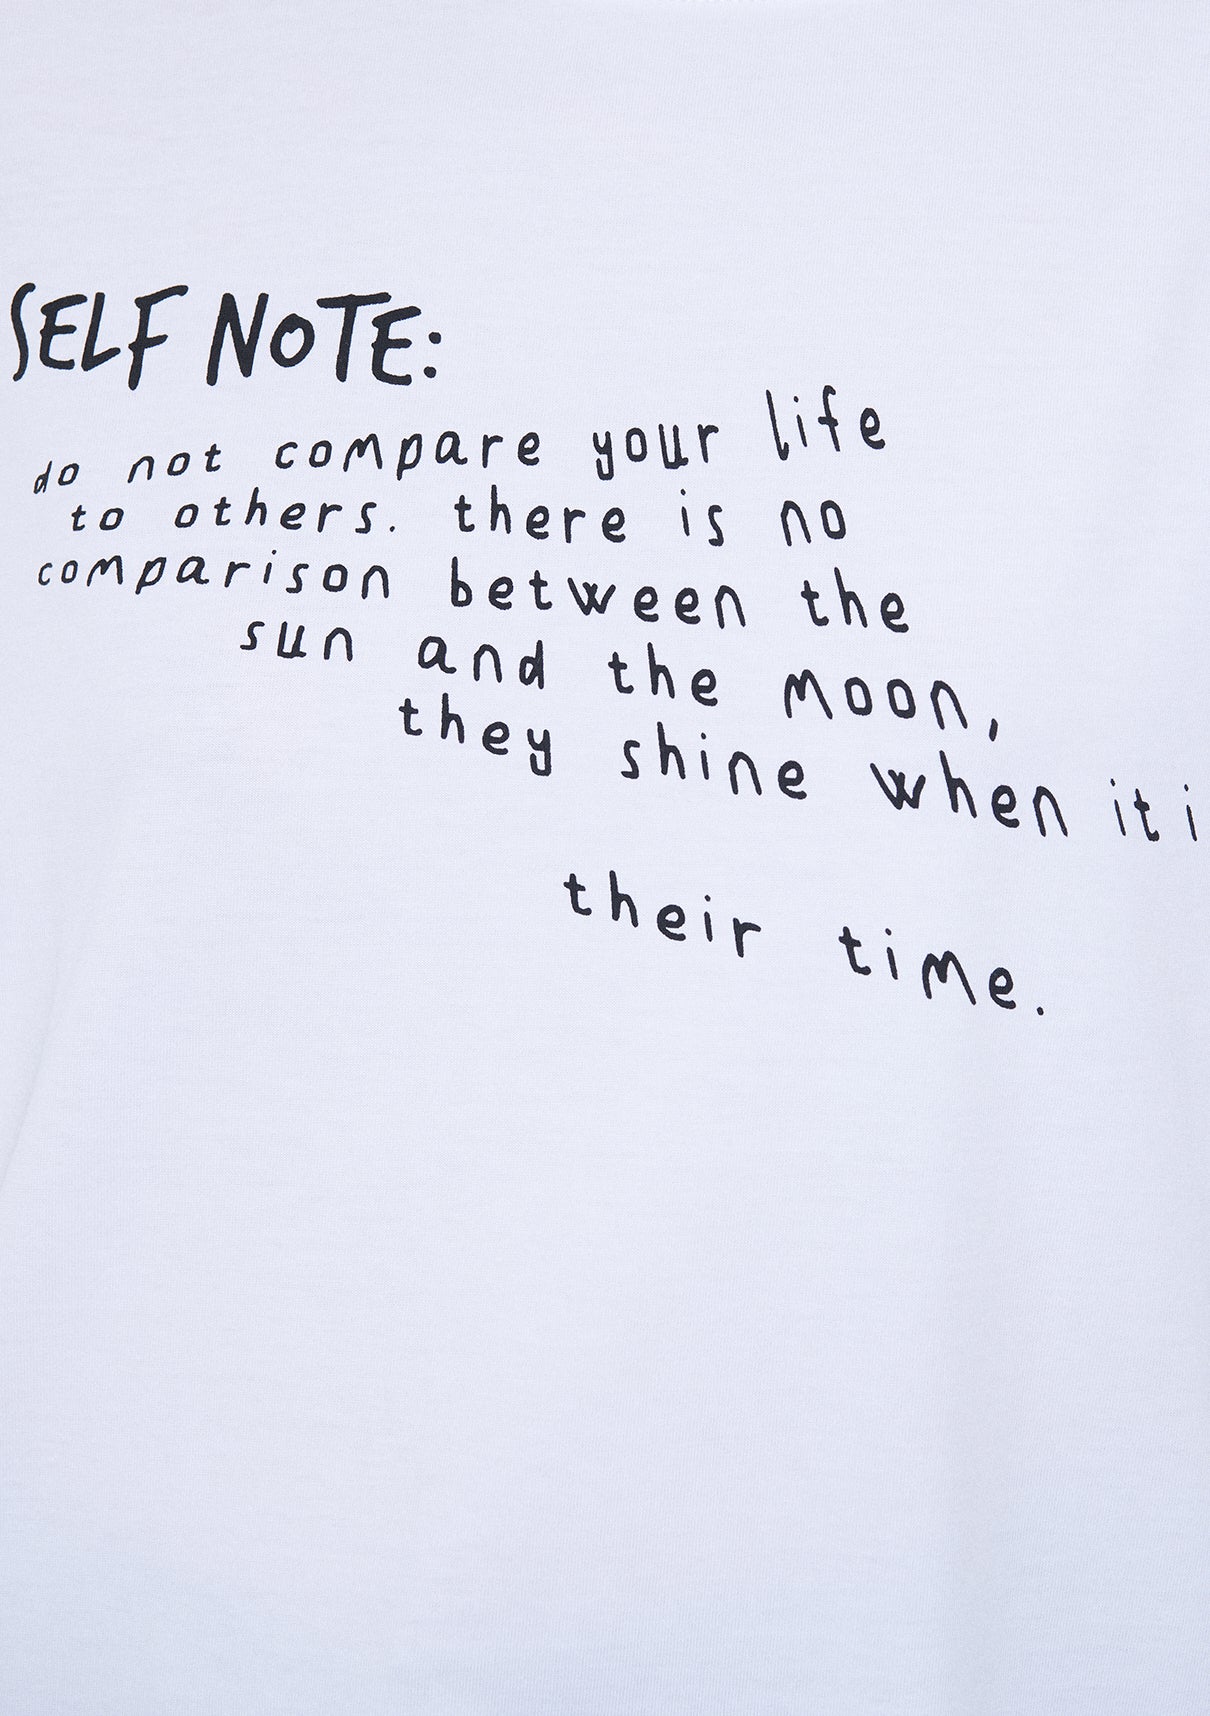 SELF NOTE:
do not compare your life
to others. there is no
comparison between the
sun and the moon,
they shine when it i
their time.